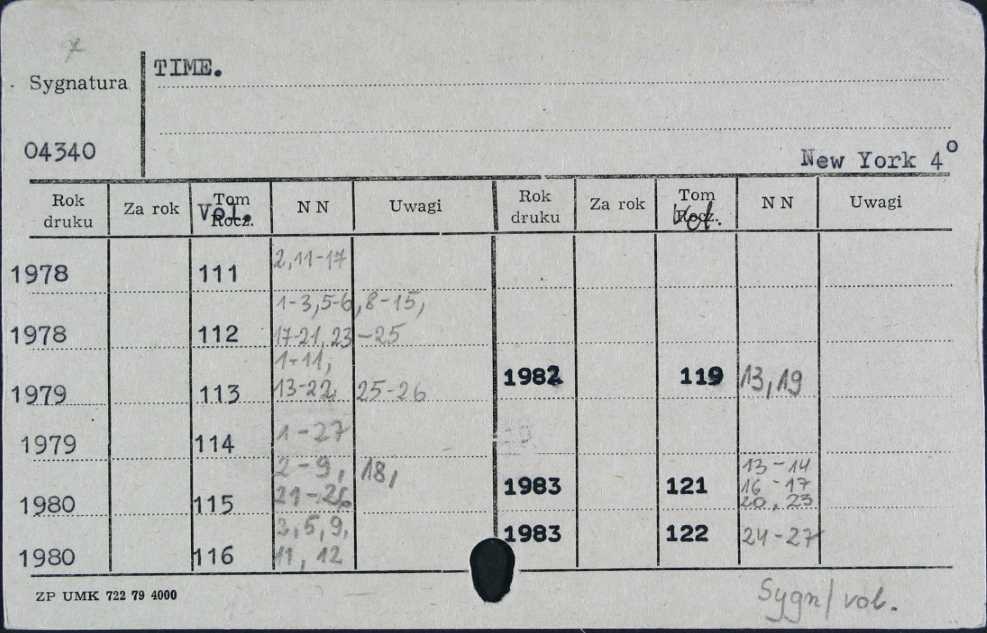 TIME.
Sygnatura
04340
New York 4°
Rok druku Za rok Tom Rocz. Vol. NN Uwagi Rok druku Za rok Tom Rocz. Vol. NN Uwagi
1978 111 2,11-17
1978 112 1-3,5-6,8-15,
17-21,23-25
1979 113 1-11,
13-22, 25-26
1982 119 13,19
1979 114 1-27
1980 115 2-9, 18,
21-26
1983 121 13-14
16-17
20, 23
1980 116 2,5,9,
11, 12
1983 122 24-27
ZP UMK 722 79 4000
Sygn/vol.